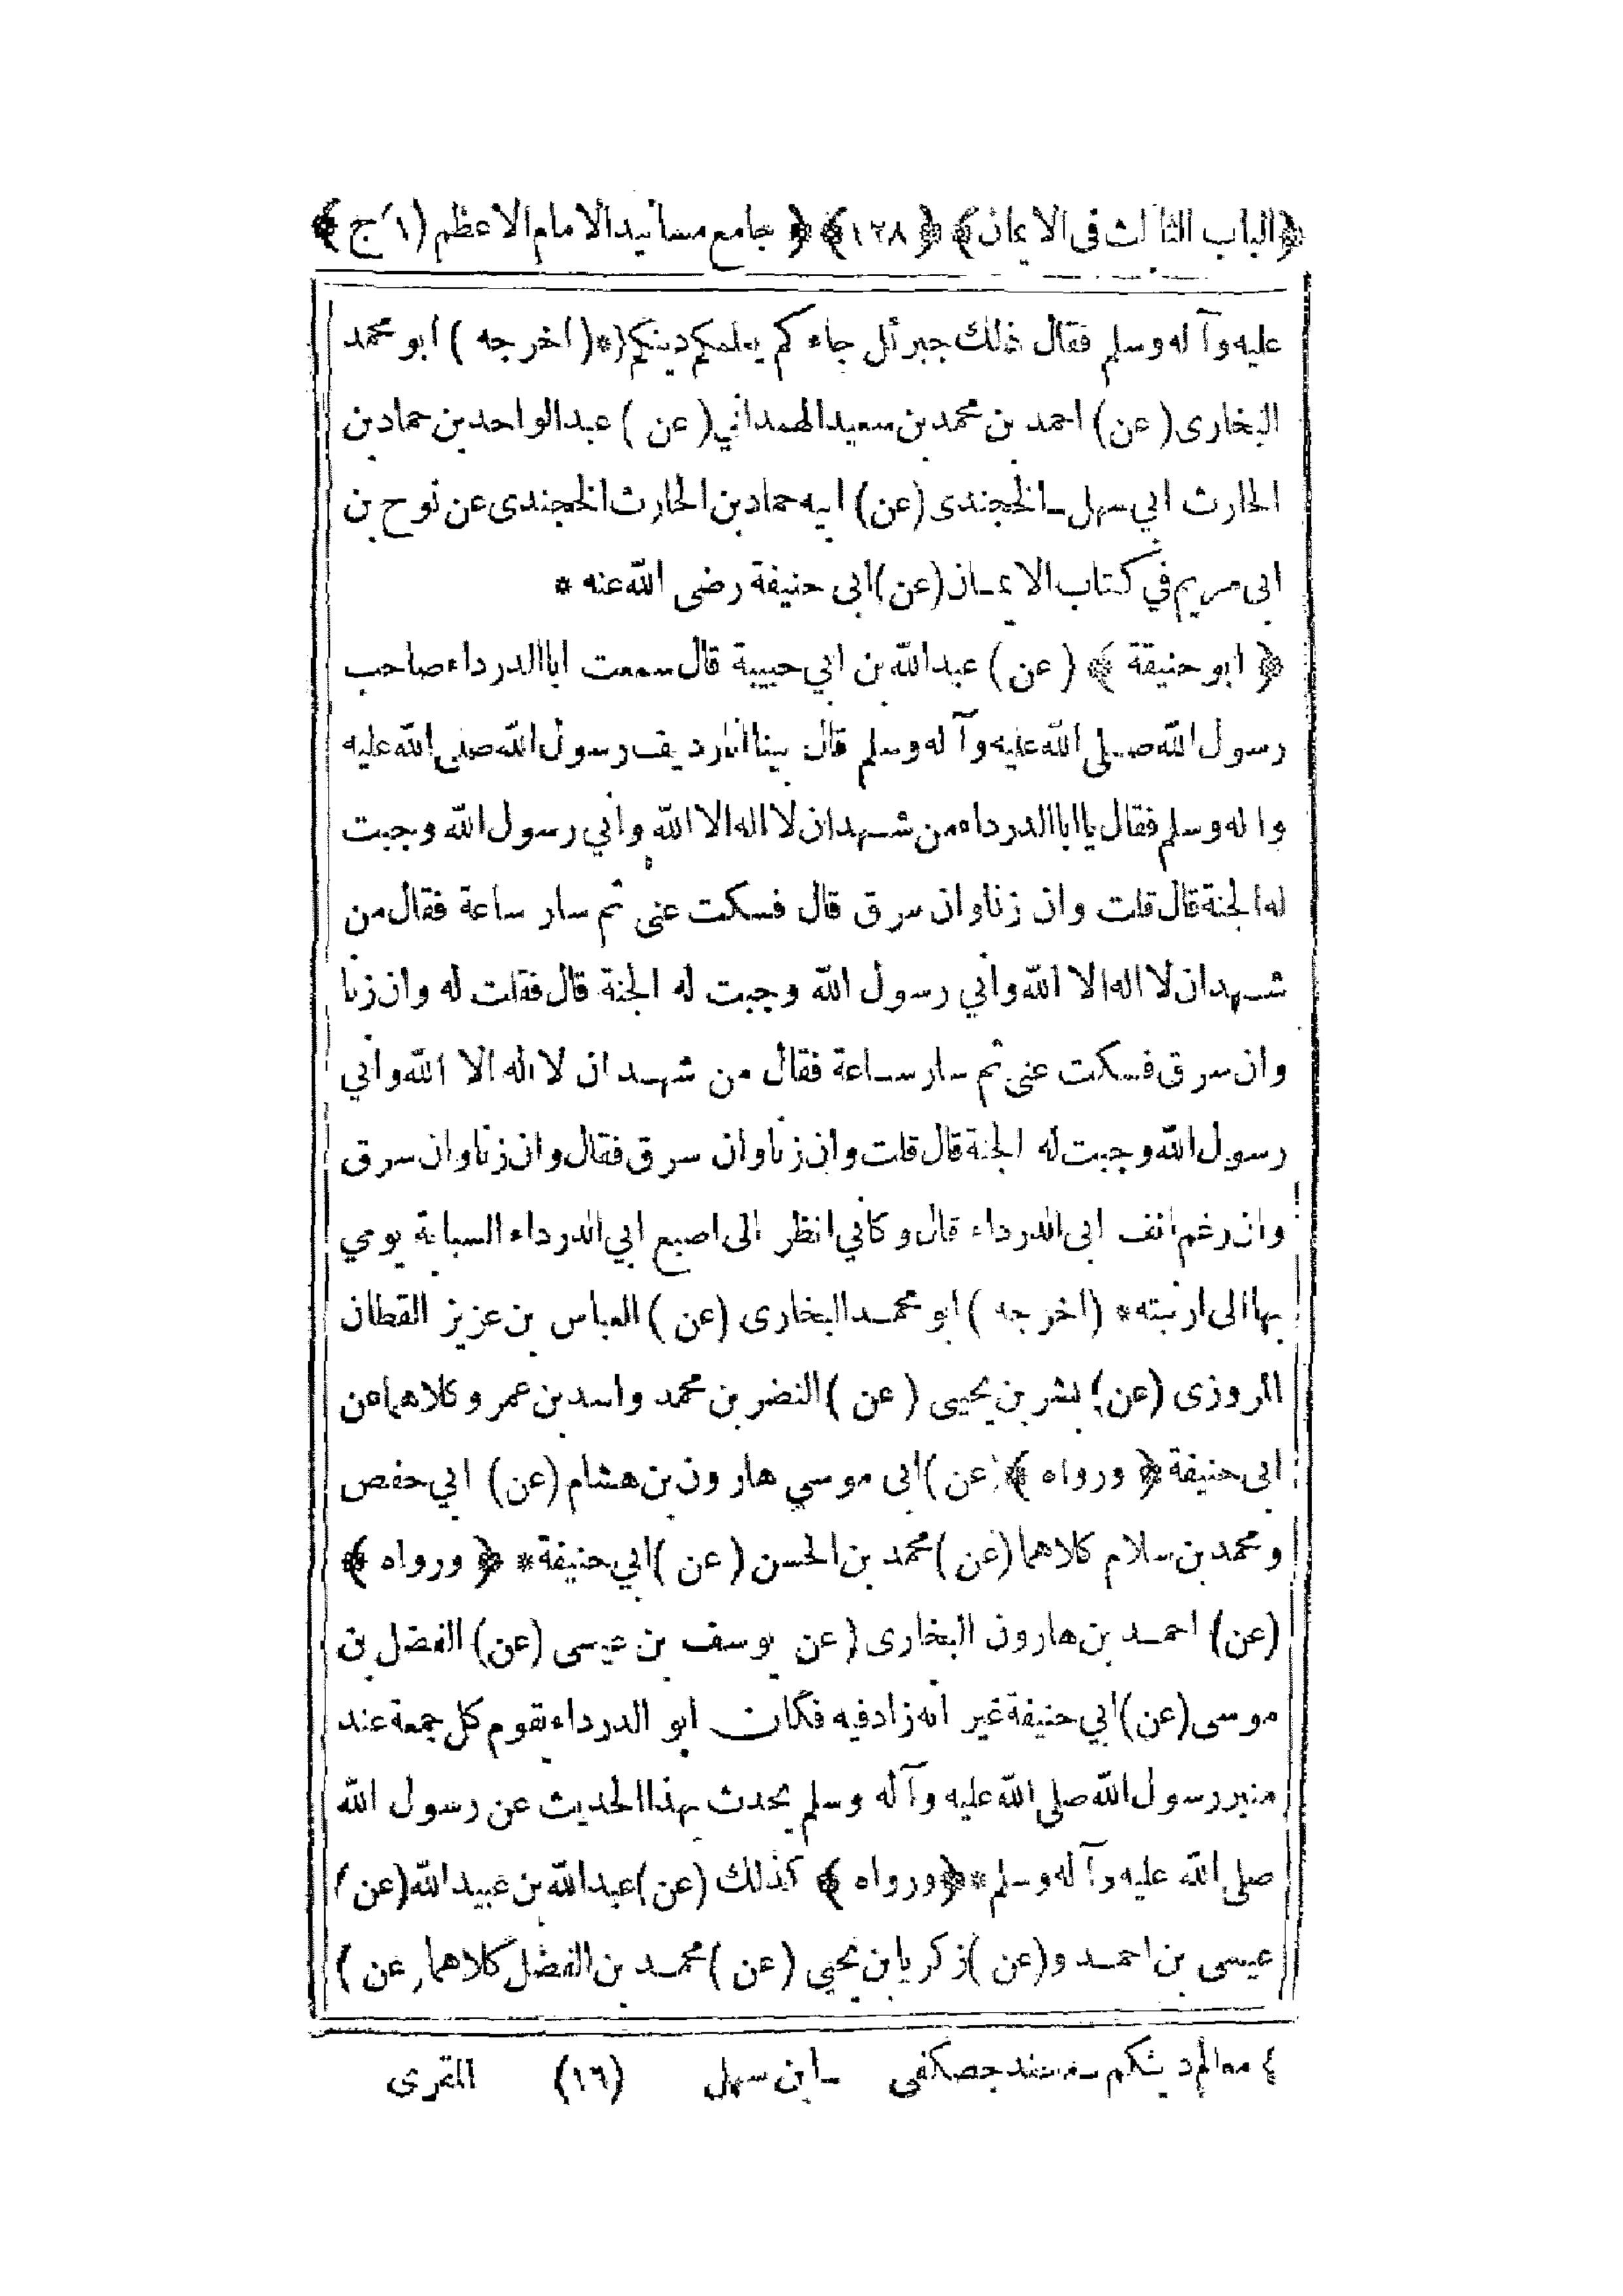 ﴿الباب الثالث فى الايمان﴾ ﴿١٢٨﴾ ﴿جامع مسانيد الامام الاعظم (١ج)﴾
عليه وآله وسلم فقال ذلك جبرئل جاءكم يعلمكم دينكم * (اخرجه) ابو محمد
البخارى (عن) احمد بن محمد بن سعيد الهمداني (عن) عبد الواحد بن حماد بن
الحارث ابي سهل ـ الخجندى (عن) ابيه حماد بن الحارث الخجندى عن نوح بن
ابى مريم في كتاب الايمان (عن) ابى حنيفة رضى الله عنه *
﴿ابو حنيفة﴾ (عن) عبد الله بن ابي حبيبة قال سمعت ابا الدرداء صاحب
رسول الله صلى الله عليه وآله وسلم قال بينا انا رديف رسول الله صلى الله عليه
واله وسلم فقال يا ابا الدرداء من شهد ان لا اله الا الله واني رسول الله وجبت
له الجنة قال قلت وان زنا وان سرق قال فسكت عنى ثم سار ساعة فقال من
شهد ان لا اله الا الله واني رسول الله وجبت له الجنة قال فقلت له وان زنا
وان سرق فسكت عنى ثم سار ساعة فقال من شهد ان لا اله الا الله واني
رسول الله وجبت له الجنة قال قلت وان زنا وان سرق فقال وان زنا وان سرق
وان رغم انف ابى الدرداء قال وكاني انظر الى اصبع ابي الدرداء السبابة يومي
بها الى ارنبته * (اخرجه) ابو محمد البخارى (عن) العباس بن عزيز القطان
المروزى (عن) بشر بن يحيى (عن) النضر بن محمد واسد بن عمرو كلاهما عن
ابى حنيفة ﴿ورواه﴾ (عن) ابى موسي هارون بن هشام (عن) ابي حفص
ومحمد بن سلام كلاهما (عن) محمد بن الحسن (عن) ابي حنيفة * ﴿ورواه﴾
(عن) احمد بن هارون البخارى (عن يوسف بن عيسى (عن) الفضل بن
موسى (عن) ابي حنيفة غير انه زاد فيه فكان ابو الدرداء يقوم كل جمعة عند
منبر رسول الله صلى الله عليه وآله وسلم يحدث بهذا الحديث عن رسول الله
صلى الله عليه وآله وسلم * ﴿ورواه﴾ كذلك (عن) عبد الله بن عبيد الله (عن)
عيسى بن احمد و (عن) زكريا بن يحيى (عن) محمد بن الفضل كلاهما (عن)
معالم دينكم ـ مسند حصكفى ـ ابن سهل (١٦) المقرى